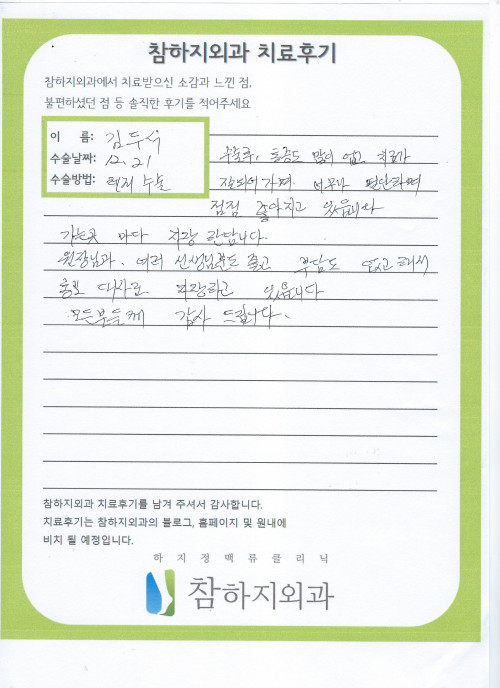 참하지외과 치료후기
참하지외과에서 치료받으신 소감과 느낀 점,
불편하셨던 점 등 솔직한 후기를 적어주세요
이 름: 김두식
수술날짜: 12. 21
수술방법: 렌지 수술
수술후, 통증도 많이 없고 치료가
잘되어가며 너무나 편안하며
점점 좋아지고 있읍니다
가는곳 마다 자랑 한답니다.
원장님과, 여러 선생님분도 좋고 부담도 없고 해서
홍보 대사로 자랑하고 있읍니다
모든분들께 감사 드립니다.
참하지외과 치료후기를 남겨 주셔서 감사합니다.
치료후기는 참하지외과의 블로그, 홈페이지 및 원내에
비치 될 예정입니다.
하지정맥류클리닉
참하지외과